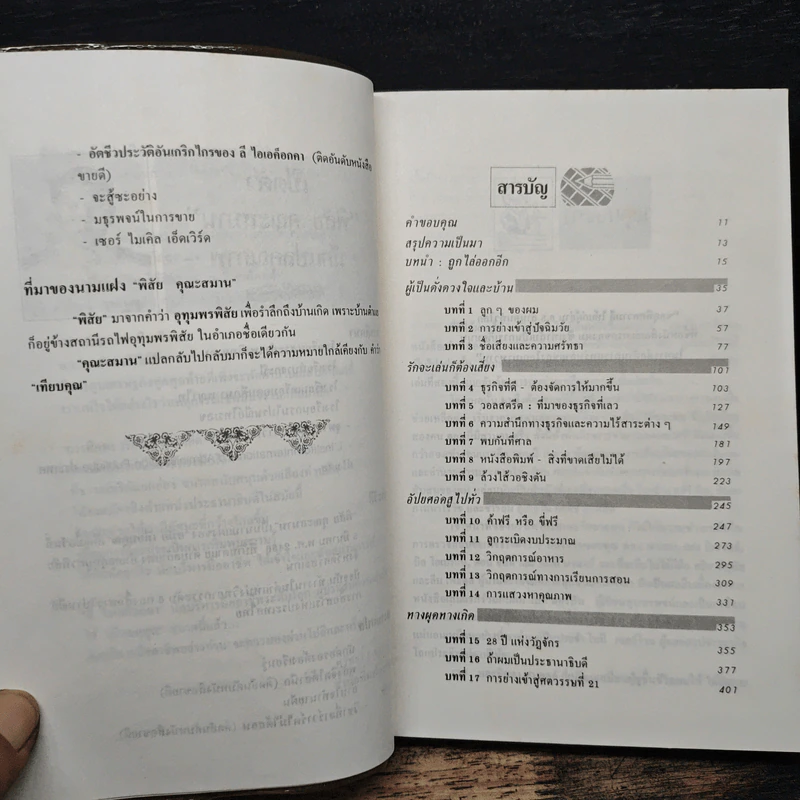 - อัตชีวประวัติอันเกริกไกรของ ลี ไอเอค็อกคา (ติดอันดับหนังสือ
ขายดี)
- จะสู้ซะอย่าง
- มธุรพจน์ในการขาย
- เซอร์ ไมเคิล เอ็ดเวิร์ด
ที่มาของนามแฝง "พิสัย คุณะสมาน"
"พิสัย" มาจากคำว่า อุทุมพรพิสัย เพื่อรำลึกถึงบ้านเกิด เพราะบ้านเดิม
ก็อยู่ข้างสถานีรถไฟอุทุมพรพิสัย ในอำเภอชื่อเดียวกัน
"คุณะสมาน" แปลกลับไปกลับมาก็จะได้ความหมายใกล้เคียงกับ คำว่า
"เทียบคุณ"
สารบัญ
คำขอบคุณ 11
สรุปความเป็นมา 13
บทนำ : ถูกไล่ออกอีก 15
ผู้เป็นดั่งดวงใจและบ้าน 35
บทที่ 1 ลูก ๆ ของผม 37
บทที่ 2 การย่างเข้าสู่ปัจฉิมวัย 57
บทที่ 3 ชื่อเสียงและความศรัทธา 77
รักจะเล่นก็ต้องเสี่ยง 101
บทที่ 4 ธุรกิจที่ดี - ต้องจัดการให้มากขึ้น 103
บทที่ 5 วอลสตรีต : ที่มาของธุรกิจที่เลว 127
บทที่ 6 ความสำนึกทางธุรกิจและความไร้สาระต่าง ๆ 149
บทที่ 7 พบกันที่ศาล 181
บทที่ 8 หนังสือพิมพ์ - สิ่งที่ขาดเสียไม่ได้ 197
บทที่ 9 ล้วงไส้วอชิงตัน 223
อัปยศอดสูไปทั่ว 245
บทที่ 10 ค้าฟรี หรือ ขี่ฟรี 247
บทที่ 11 ลูกระเบิดงบประมาณ 273
บทที่ 12 วิกฤตการณ์อาหาร 295
บทที่ 13 วิกฤตการณ์ทางการเรียนการสอน 309
บทที่ 14 การแสวงหาคุณภาพ 331
ทางผุดทางเกิด 353
บทที่ 15 28 ปี แห่งวัฏจักร 355
บทที่ 16 ถ้าผมเป็นประธานาธิบดี 377
บทที่ 17 การย่างเข้าสู่ศตวรรษที่ 21 401